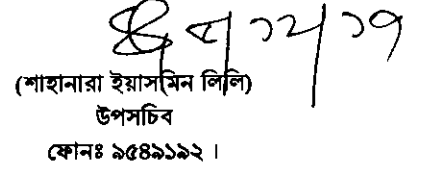 (শাহানারা ইয়াসমিন লিলি)
উপসচিব
ফোনঃ ৯৫৪৯১৯২ ।